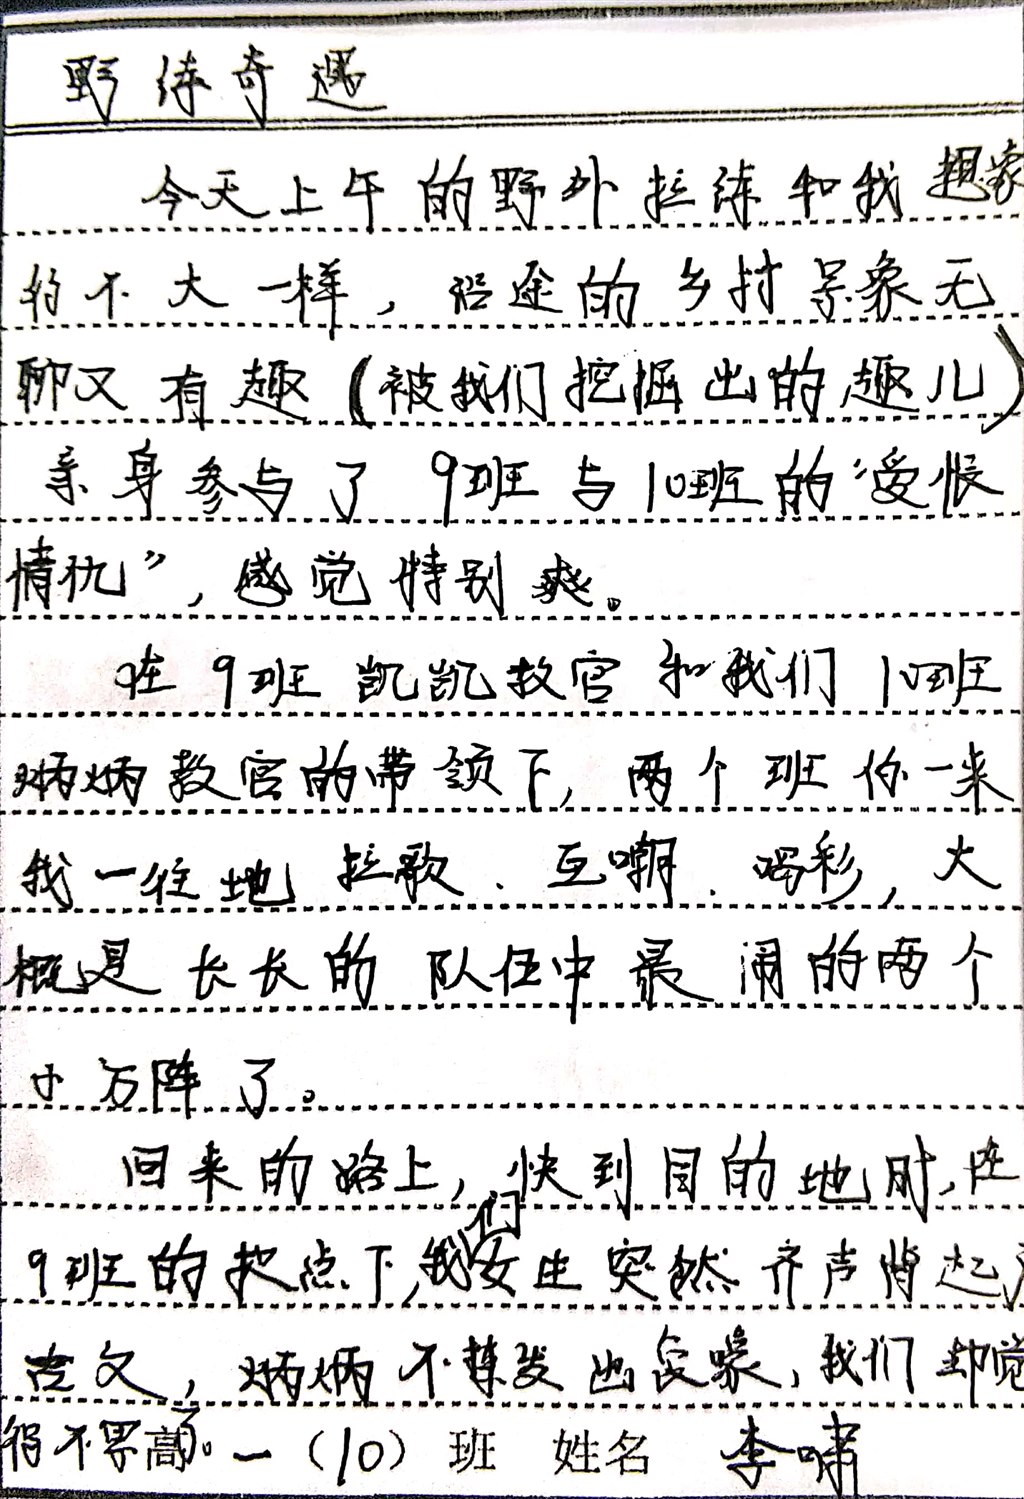 野练奇遇
今天上午的野外拉练和我想象
的不大一样，沿途的乡村景象无
聊又有趣（被我们挖掘出的趣儿）
亲身参与了9班与10班的“爱恨
情仇”，感觉特别爽。
在9班凯凯教官和我们10班
炳炳教官的带领下，两个班你一来
我一往地拉歌、互嘲、喝彩，大
概是长长的队伍中最闹的两个
小方阵了。
回来的路上，快到目的地时，在
9班的把点下，我们女生突然齐声背起了
古文，炳炳不禁发出
，我们却觉
得不累了。
高一（10）班 姓名 李啸